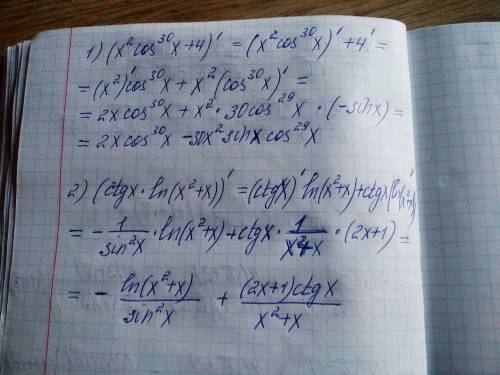 1) (x² cos³⁰x + 4)' = (x² cos³⁰x)' + 4' =
= (x²)' cos³⁰x + x² (cos³⁰x)' =
= 2x cos³⁰x + x² · 30 cos²⁹x · (-sin x) =
= 2x cos³⁰x - 30x² sin x cos²⁹x
2) (ctgx · ln(x²+x))' = (ctgx)' ln(x²+x) + ctgx (ln(x²+x))'
= - 1/sin²x · ln(x²+x) + ctgx · 1/x²+x · (2x+1) =
= - ln(x²+x)/sin²x + (2x+1)ctgx/x²+x